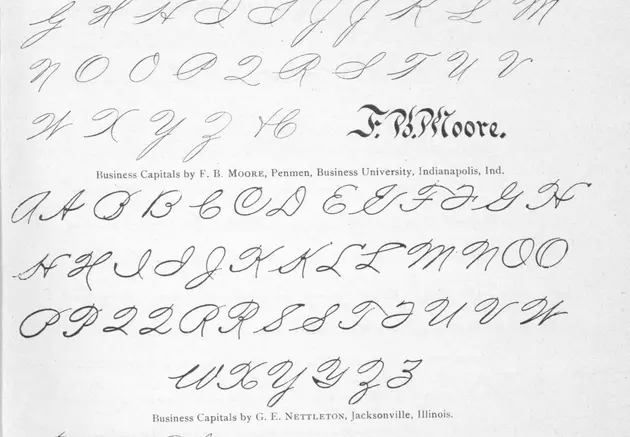 G H H I I J J K L M
N O O P Q R S T U V
W X Y Z &C F. B. Moore.
Business Capitals by F. B. MOORE, Penmen, Business University, Indianapolis, Ind.
A A B B C C D E E F F G H
H H I I J K K L L M N O O
P P Q Q R R S S T T U V W
W X Y Y Z Z
Business Capitals by G. E. NETTLETON, Jacksonville, Illinois.